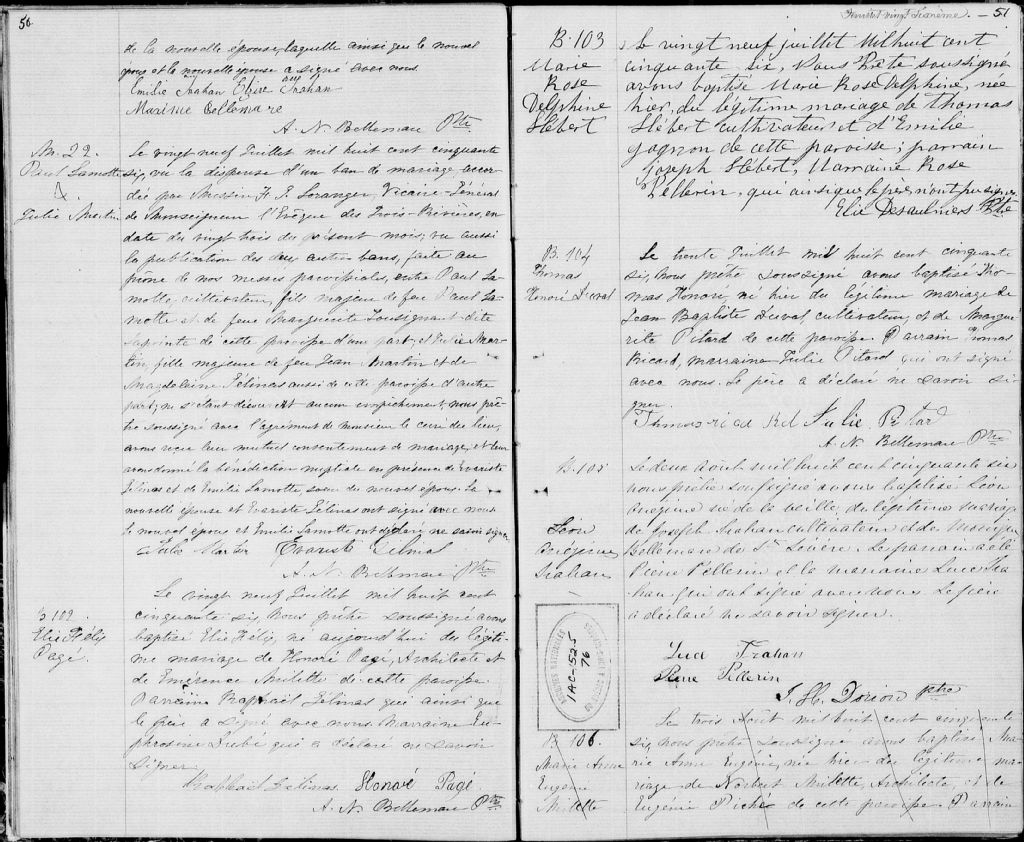 50.
de la nouvelle épouse, laquelle ainsi que le nouvel
époux et la nouvelle épouse a signé avec nous.
Emilie Trahan Elzire Trahan
Maxime Bellemare
A. N. Bellemare Ptre
M. 22.
Paul Lamotte
&
Julie Martin
Le vingt neuf Juillet mil huit cent cinquante
six, vu la dispense d'un ban de mariage accor-
dée par Messire F. Z. Loranger, Vicaire-Général
de Monseigneur l'Evêque des Trois-Rivières, en
date du vingt trois du présent mois; vu aussi
la publication des deux autres bans, faite au
prône de nos messes paroissiales, entre Paul La-
motte, cultivateur, fils majeur de feu Paul La-
motte et de feue Marguerite Lousignant dite
Lapointe de cette paroisse d'une part; et Julie Mar-
tin, fille majeure de feu Jean Martin et de
Magdeleine Gélinas aussi de cette paroisse d'autre
part; ne s'étant découvert aucun empêchement, nous prê-
tre soussigné avec l'agrément de monsieur le curé du lieu,
avons reçu leur mutuel consentement de mariage, et leur
avons donné la bénédiction nuptiale en présence de Evariste
Gélinas et de Emilie Lamotte soeur du nouvel époux. La
nouvelle épouse et Evariste Gélinas ont signé avec nous
le nouvel époux et Emilie Lamotte ont déclaré ne savoir signer
Julie Martin Evariste Gelinas
A. N. Bellemare Ptre
B 102.
Elie Félix
Pagé.
Le vingt neuf Juillet mil huit cent
cinquante six, Nous prêtre soussigné avons
baptisé Elie Félix, né aujourd'hui du légiti-
me mariage de Honoré Pagé, Architecte et
de Emérence Milette de cette paroisse.
Parrain Raphaël Gélinas qui ainsi que
le père a signé avec nous. Marraine Eu-
phrosine Dubé qui a déclaré ne savoir
signer.
Raphaël Gélinas Honoré Pagé
A. N. Bellemare Ptre
Feuillet vingt sixième. — 51
B. 103
Marie
Rose
Delphine
Hébert
Le vingt neuf juillet Mil huit cent
cinquante six, Nous Prêtre soussigné
avons baptisé Marie Rose Delphine, née
hier, du légitime mariage de Thomas
Hébert cultivateur et d'Emilie
Gagnon de cette paroisse; parrain
joseph Hébert, Marraine Rose
Pellerin, qui ainsi que le père, n'ont pu signer
Elie Desaulniers Ptre
B. 104
Thomas
Honoré Duval
Le trente Juillet mil huit cent cinquante
six, Nous prêtre soussigné avons baptisé Tho-
mas Honoré, né hier du légitime mariage de
Jean Baptiste Duval cultivateur, et de Margue-
rite Pitard de cette paroisse. Parrain Thomas
Ricard, marraine Julie Pitard qui ont signé
avec nous. Le père a déclaré ne savoir si-
gner.
Thomas Ricard Julie Pitard
A. N. Bellemare Ptre
B. 105
Léon
Onézime
Trahan
Le deux Août mil huit cent cinquante six
nous prêtre soussigné avons baptisé Léon
Onézime né de la veille, du légitime mariage
de Joseph Trahan cultivateur et de
Bellemare de St. Sévère. Le parrain a été
Pierre Pellerin et la marraine Luce Tra-
han qui ont signé avec nous. Le père
a déclaré ne savoir signer.
Luce Trahan
Pierre Pellerin
J. H. Dorion ptre
ARCHIVES NATIONALES
1AC-152-5
76
B 106.
Marie Anne
Eugénie
Milette
Le trois Août mil huit cent cinquante
six, nous prêtre soussigné avons baptisé Ma-
rie Anne Eugénie, née hier du légitime ma-
riage de Norbert Milette, Architecte et de
Eugénie Riché de cette paroisse. Parrain